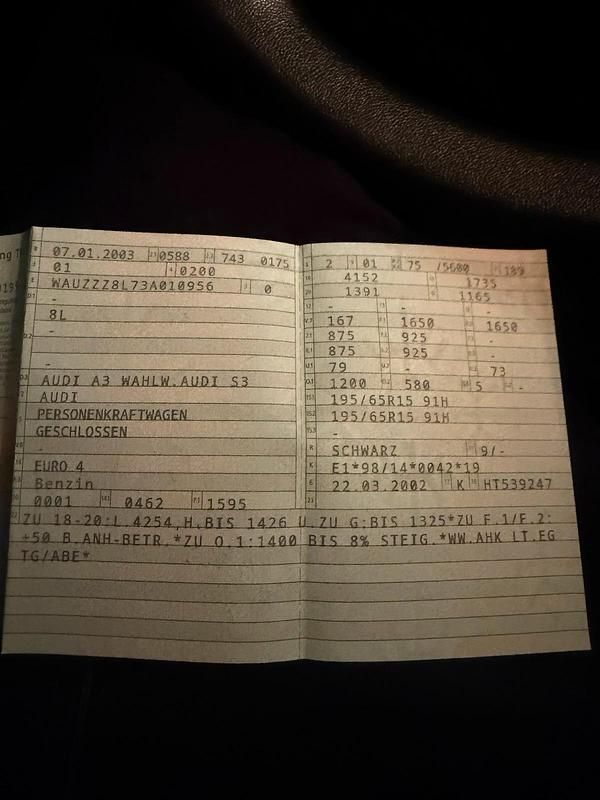 07.01.2003 0588 743 0175
01 0200
WAUZZZ8L73A010956 0
-
8L
-
-
AUDI A3 WAHLW.AUDI S3
AUDI
PERSONENKRAFTWAGEN
GESCHLOSSEN
-
EURO 4
Benzin
0001 0462 1595
2 01 75 /5600 189
4152 1735
1391 1165
- - -
167 1650 1650
875 925 -
875 925 -
79 - 73
1200 580 5 -
195/65R15 91H
195/65R15 91H
-
SCHWARZ 9/-
E1*98/14*0042*19
22.03.2002 K HT539247
ZU 18-20:L.4254,H.BIS 1426 U.ZU G:BIS 1325*ZU F.1/F.2:
+50 B.ANH-BETR.*ZU O.1:1400 BIS 8% STEIG.*WW.AHK LT.EG
TG/ABE*